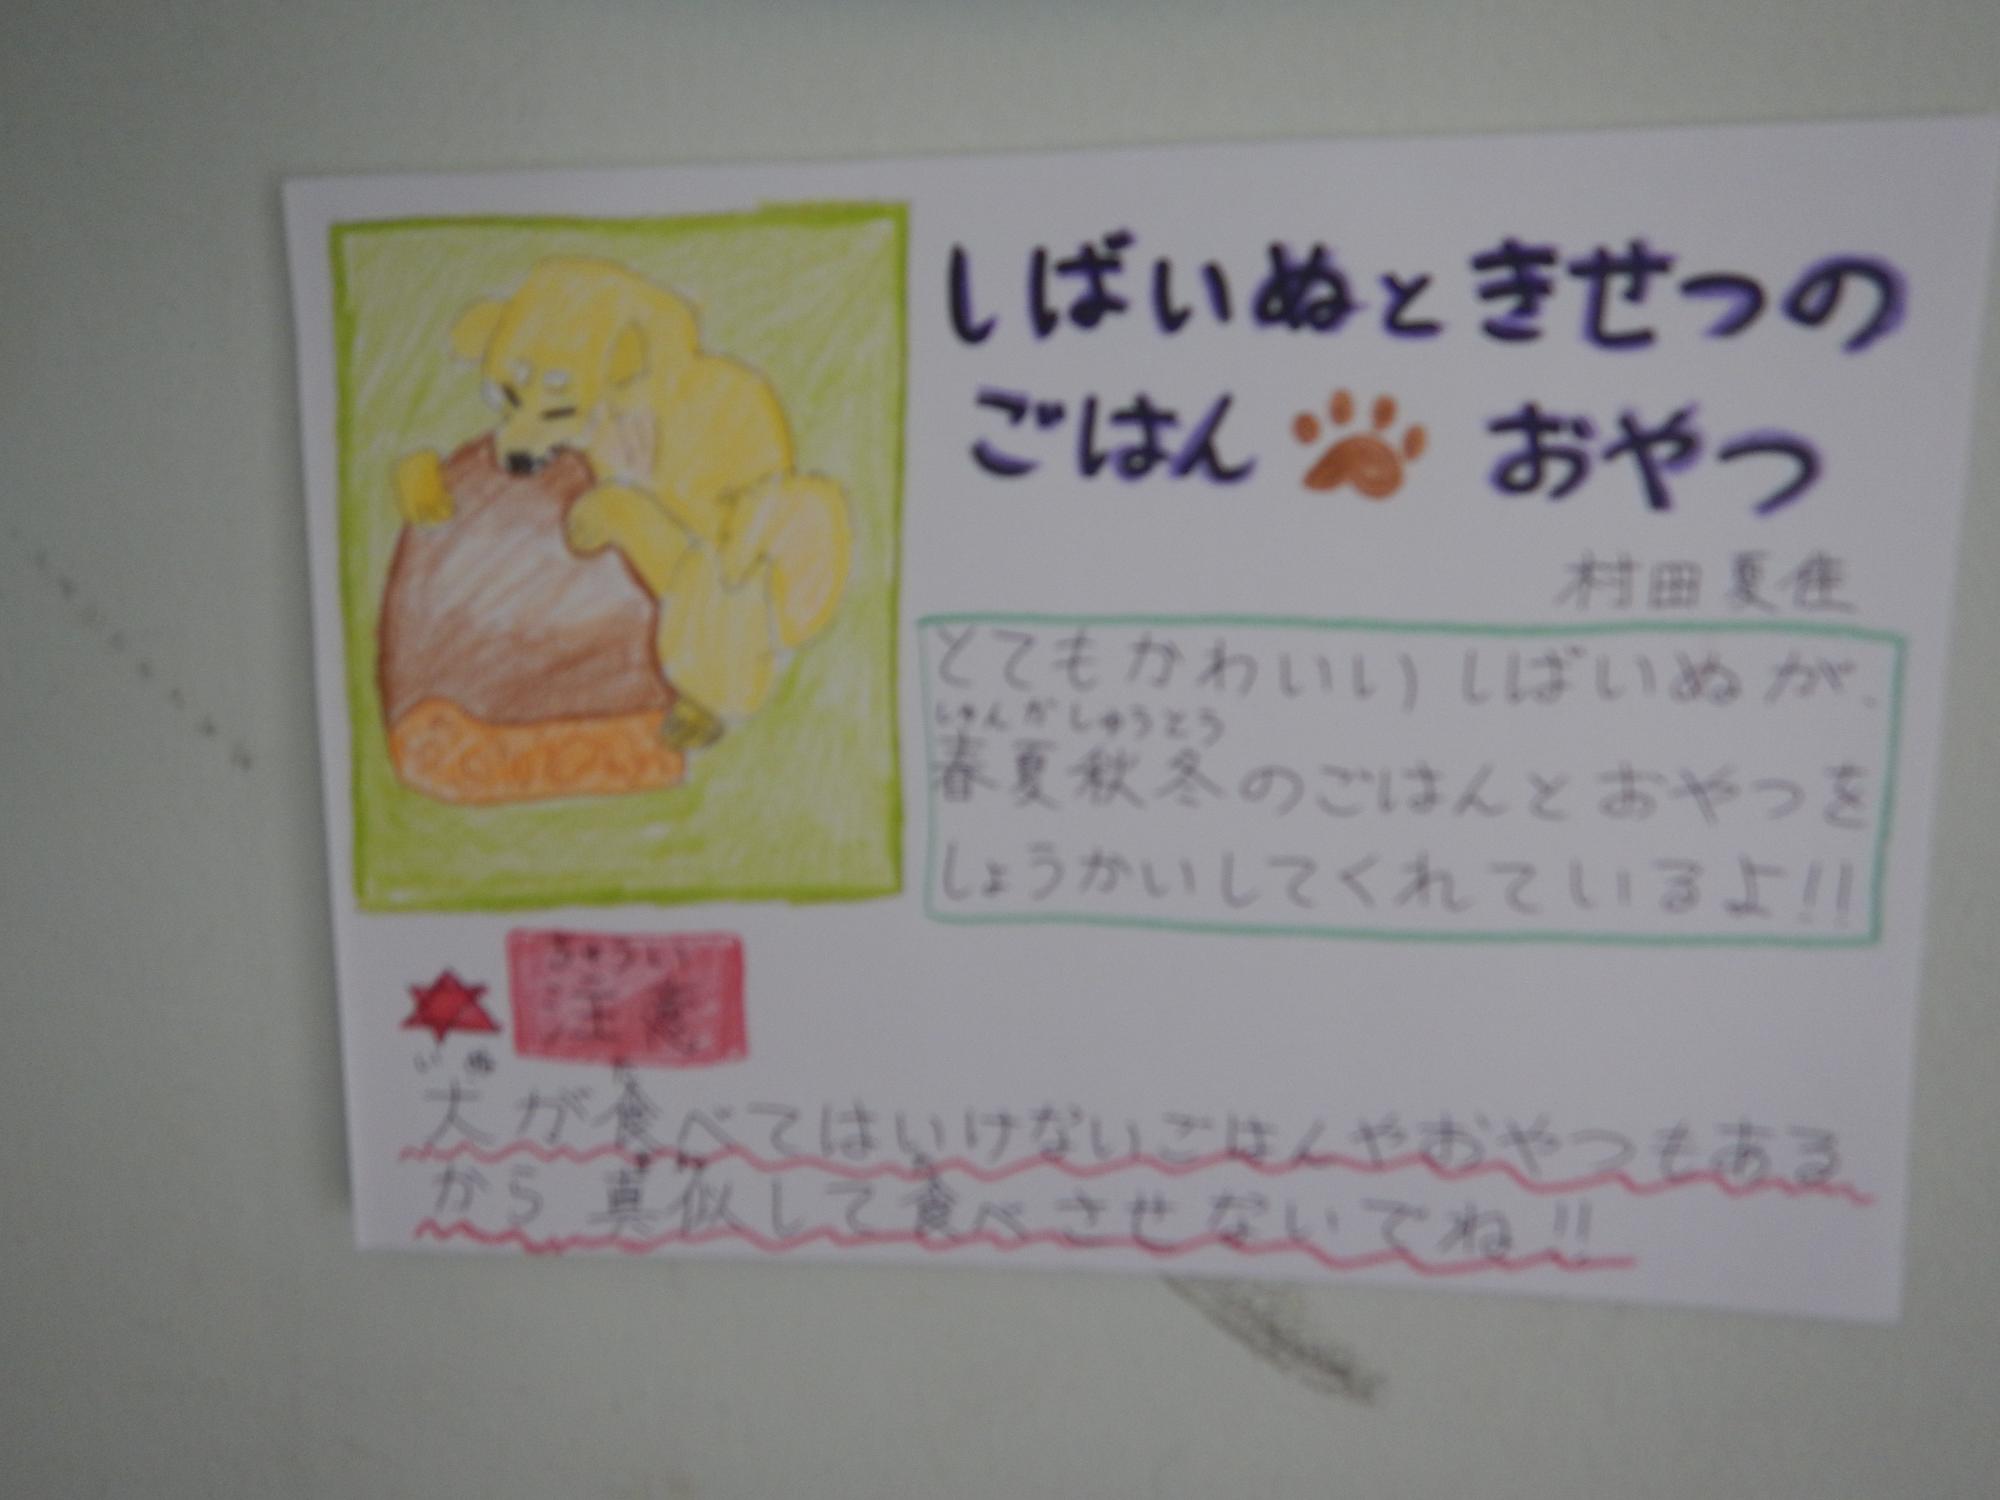 しばいぬときせつの
ごはん おやつ
村田夏佳
とてもかわいいしばいぬが、
しゅんかしゅうとう
春夏秋冬のごはんとおやつを
しょうかいしてくれているよ!!
ちゅうい
注意
いぬ た
犬が食べてはいけないごはんやおやつもある
まね た
から真似して食べさせないでね!!